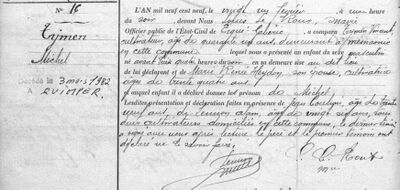 N° 16
Tymen
Michel
Décédé le 3 mars 1982
à QUIMPER.
L'AN mil neuf cent neuf, le vingt en février à une heure
du soir, devant Nous Louis Le Roux, maire
Officier public de l'État-Civil de Ergué-Gabéric, a comparu Tymen Vincent
cultivateur, âgé de quarante et un ans, demeurant à
en cette commune lequel nous a présenté un enfant du sexe masculin
né avant-hier quatre heures du soir en sa demeure sise au dit lieu
de lui déclarant et de Marie Renée son épouse, cultivatrice
âgée de trente quatre ans,
auquel enfant il a déclaré donner le prénom de Michel,
Lesdites présentation et déclaration faites en présence de Jean âgé de trente
neuf ans, et âgé de vingt six ans, tous
deux cultivateurs domiciliés en cette commune, le dernier témoin
a signé avec nous après lecture, le père et le premier témoin ont
déclaré ne le savoir faire.